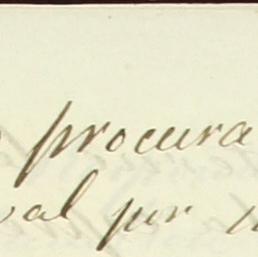 procura
val por